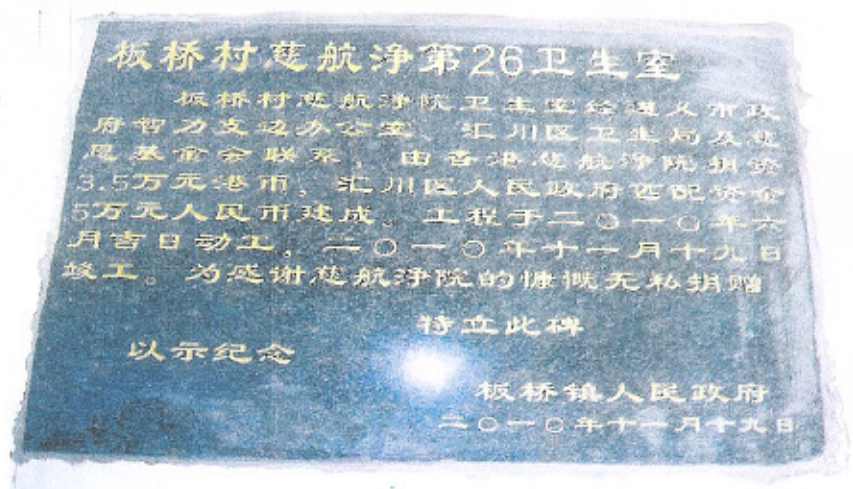 板桥村慈航净第26卫生室
板桥村慈航净院卫生室经遵义市政
府智力支边办公室、汇川区卫生局及慈
恩基金会联系，由香港慈航净院捐资
3.5万元港币，汇川区人民政府匹配资金
5万元人民币建成。工程于二〇一〇年六
月吉日动工，二〇一〇年十一月十九日
竣工。为感谢慈航净院的慷慨无私捐赠
特立此碑
以示纪念
板桥镇人民政府
二〇一〇年十一月十九日